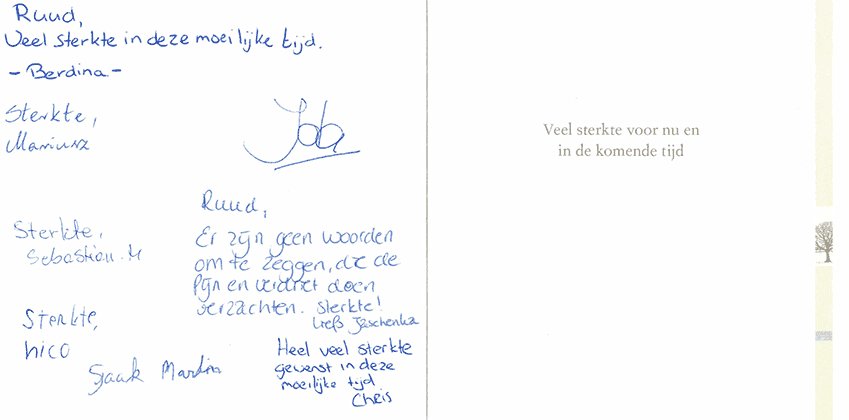 Ruud,
Veel sterkte in deze moeilijke tijd.
- Berdina -
Sterkte,
Mariusz
Sterkte,
Sebastian. M
Ruud,
Er zijn geen woorden
om te zeggen, die de
Pijn en verdriet doen
verzachten. Sterkte!
Liefs Jaschenka
Sterkte,
nico
Sjaak Martin
Heel veel sterkte
gewenst in deze
moeilijke tijd
Chris
Veel sterkte voor nu en
in de komende tijd